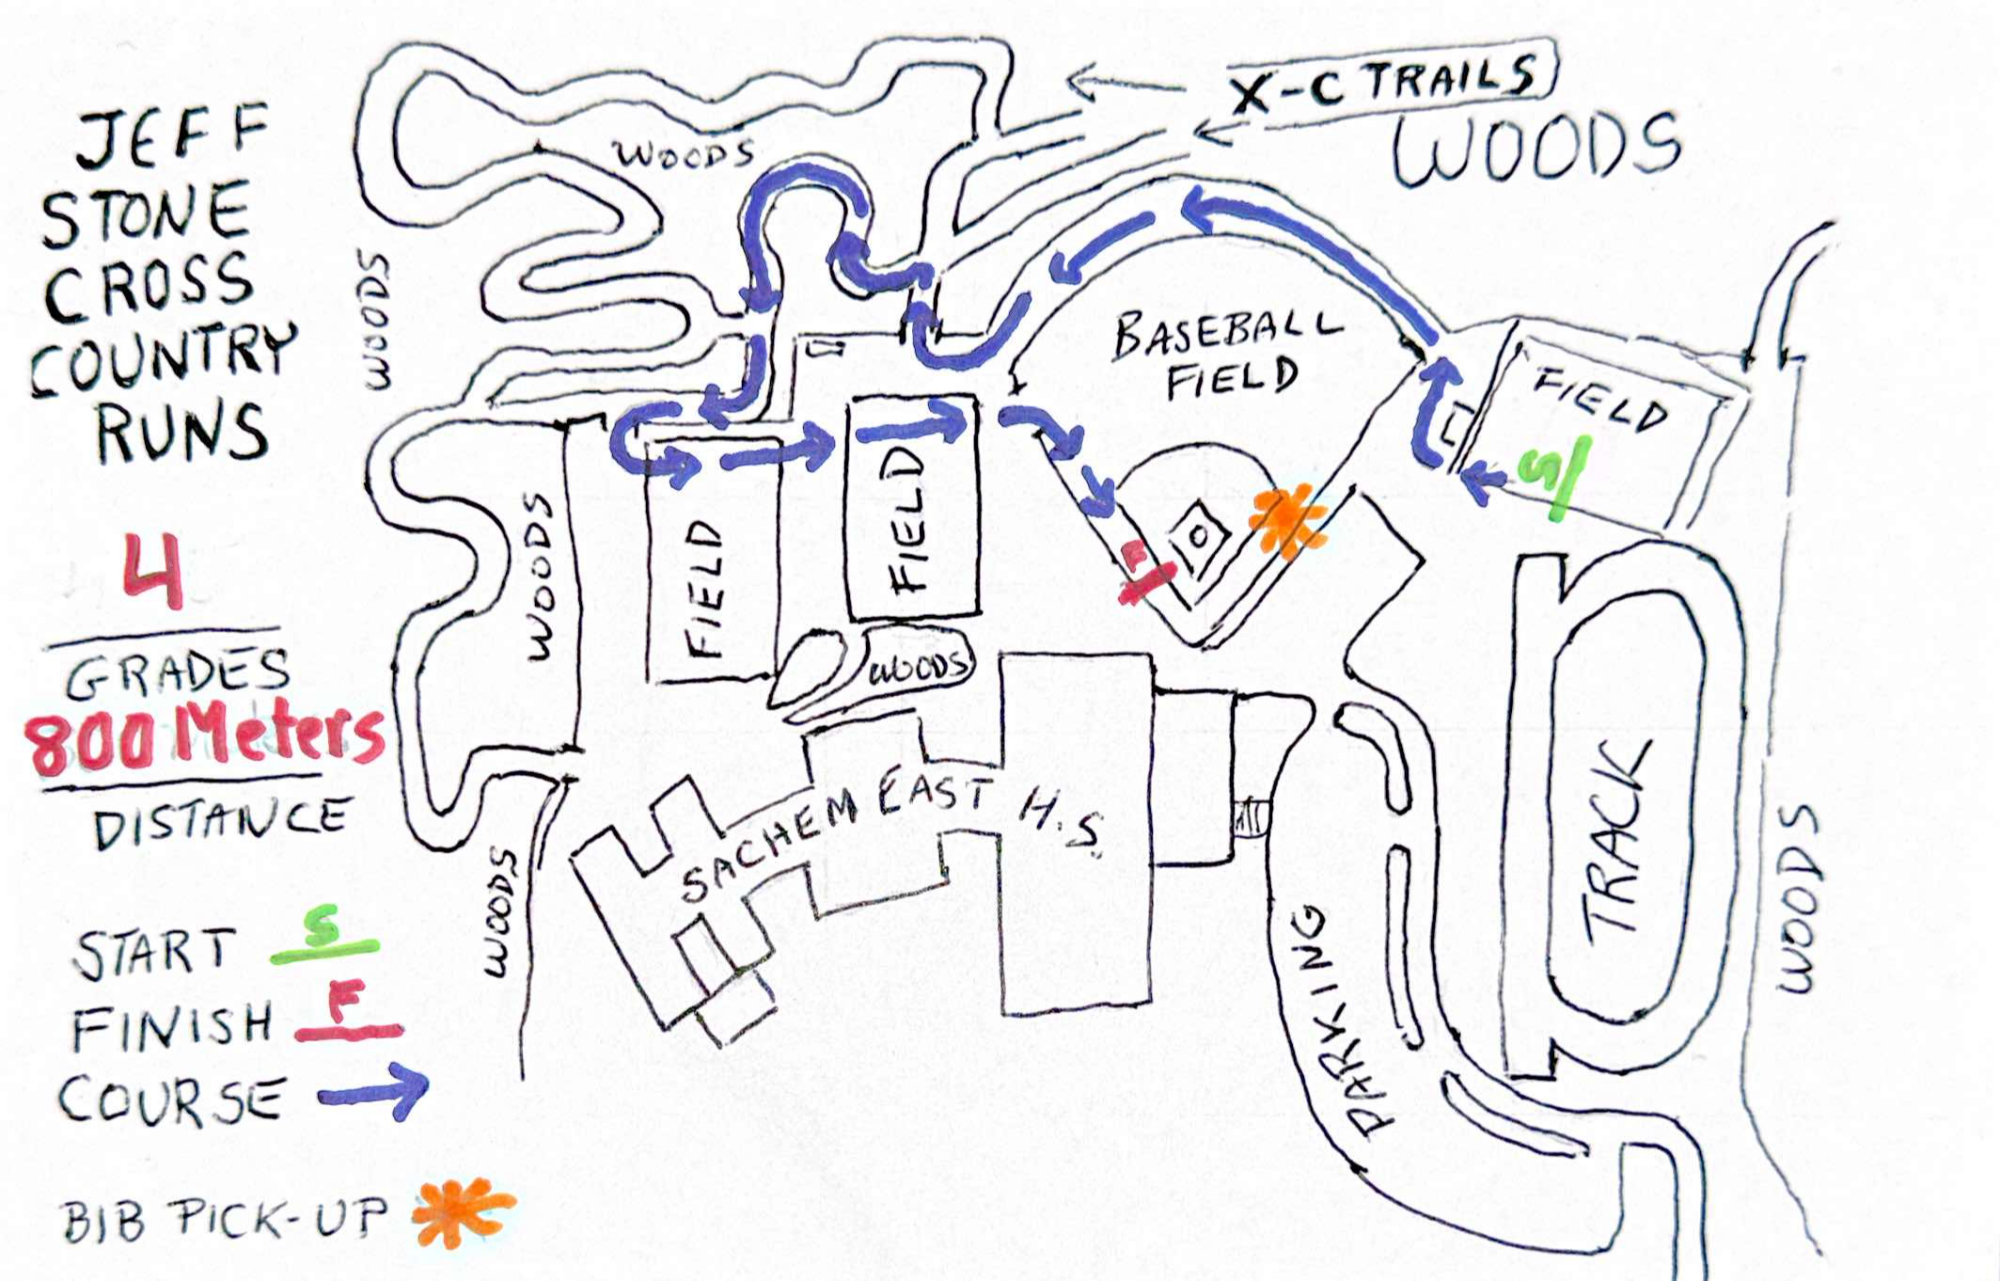 JEFF
STONE
CROSS
COUNTRY
RUNS
4
GRADES
800 Meters
DISTANCE
START S
FINISH F
COURSE
BIB PICK-UP
X-C TRAILS
WOODS
WOODS
WOODS
BASEBALL
FIELD
FIELD
S
WOODS
FIELD
FIELD
F
WOODS
SACHEM EAST H.S.
WOODS
PARKING
TRACK
WOODS